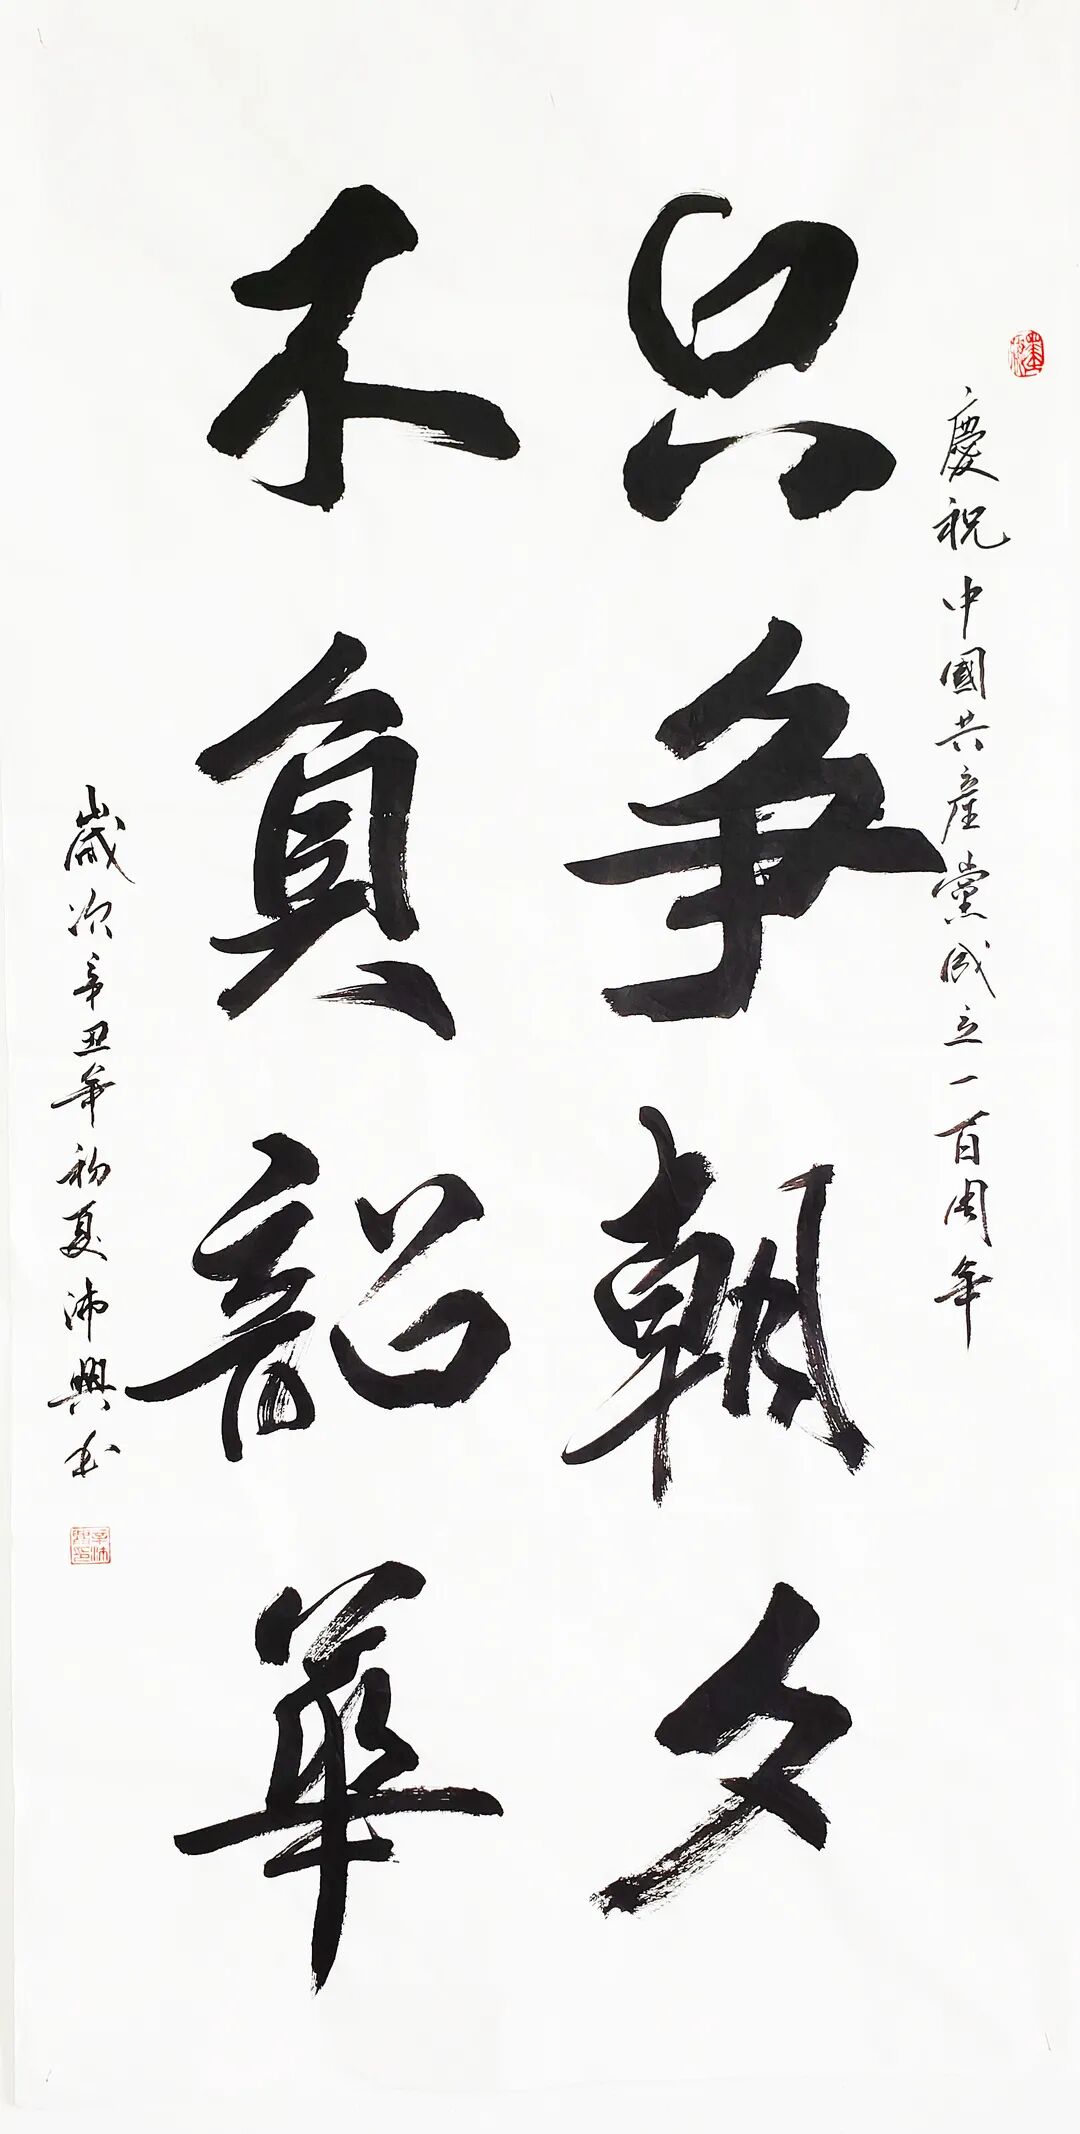 慶祝中國共產黨成立一百周年
只争朝夕
不負韶華
歲次辛丑年初夏沛興书